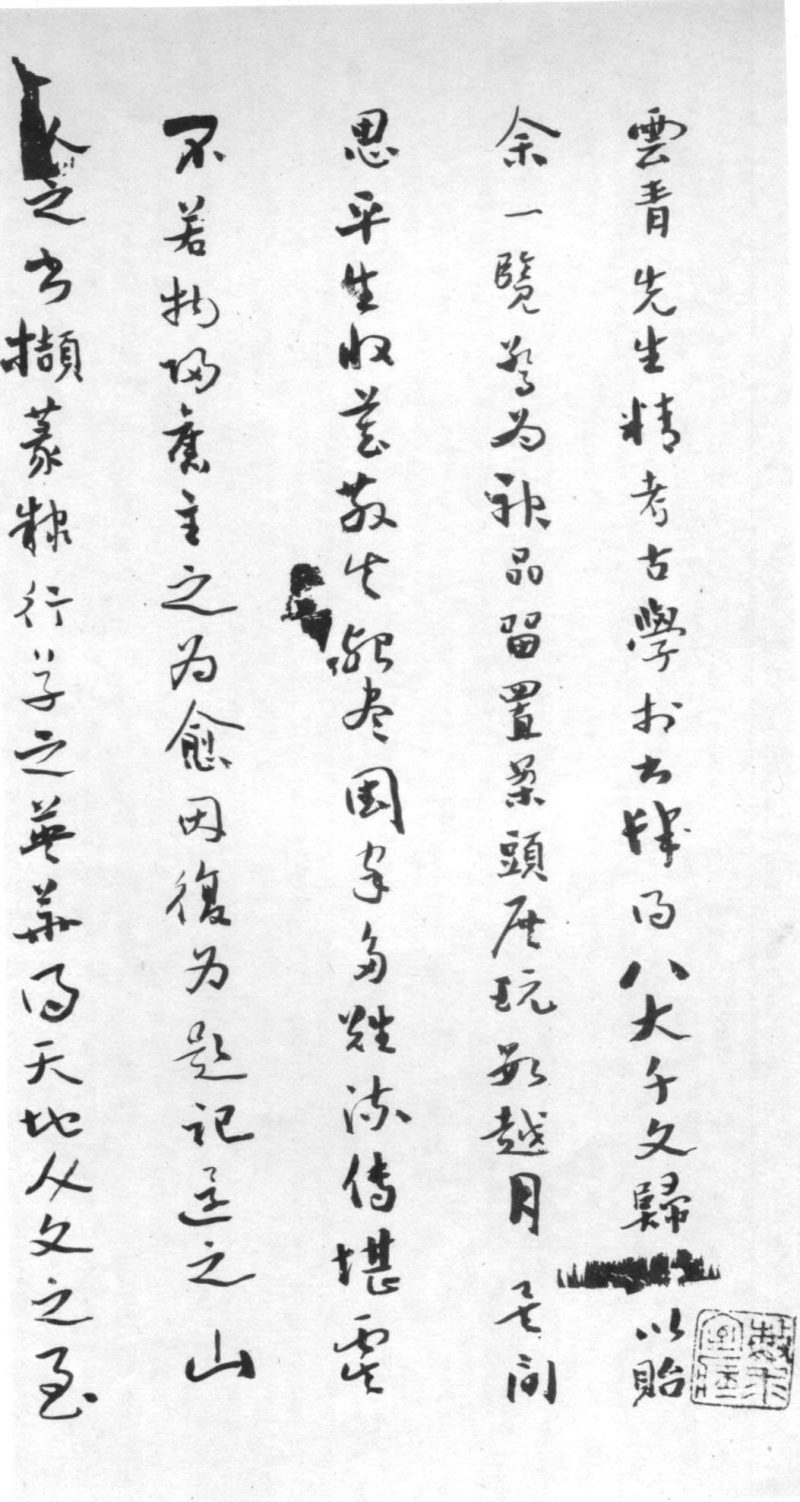 雲青先生精考古學於古肆得八大千文歸以貽
余一覽驚為神品留置案頭展玩數越月 其間
思平生收舊散失殆盡國家多難流傳堪虞
不若物歸舊主之為愈因復為題記還之 山
人之書擷篆隸行草之英華得天地人文之至